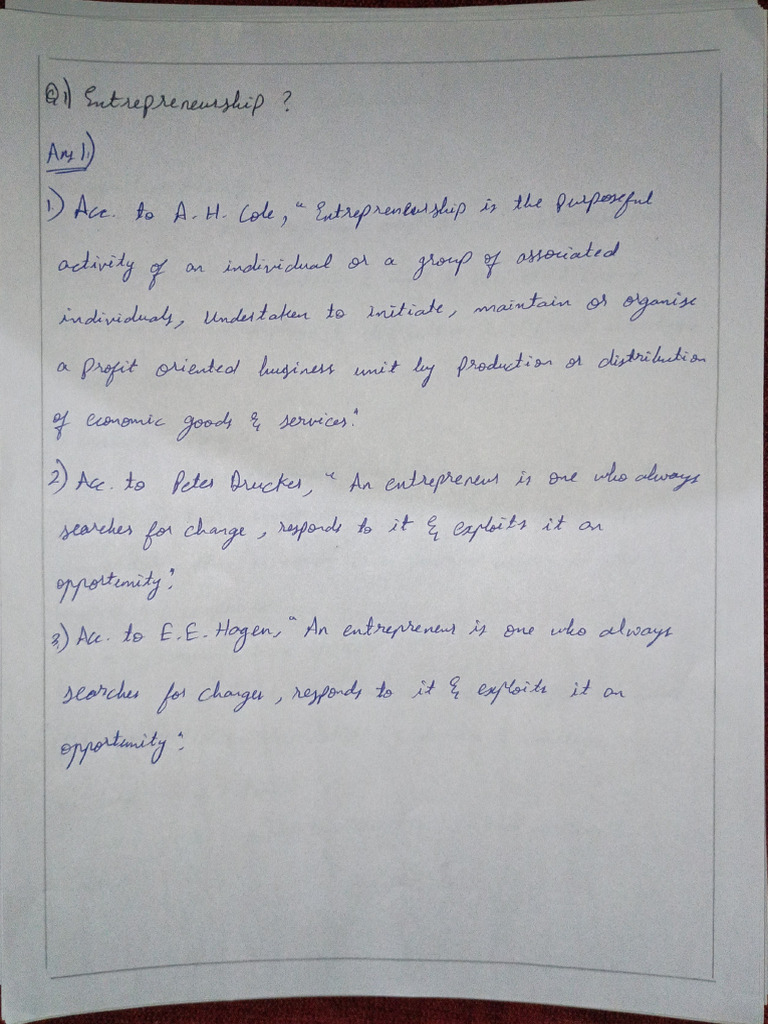 Q1) Entrepreneurship ?
Ans 1.)
1.) Acc. to A. H. Cole, "Entrepreneurship is the purposeful
activity of an individual or a group of associated
individuals, Undertaken to initiate, maintain or organise
a profit oriented business unit by production or distribution
of economic goods & services."
2) Acc. to Peter Drucker, "An entrepreneur is one who always
searches for change, responds to it & exploits it an
opportunity".
3.) Acc. to E.E. Hagen, "An entrepreneur is one who always
searches for changes, responds to it & exploits it an
opportunity".